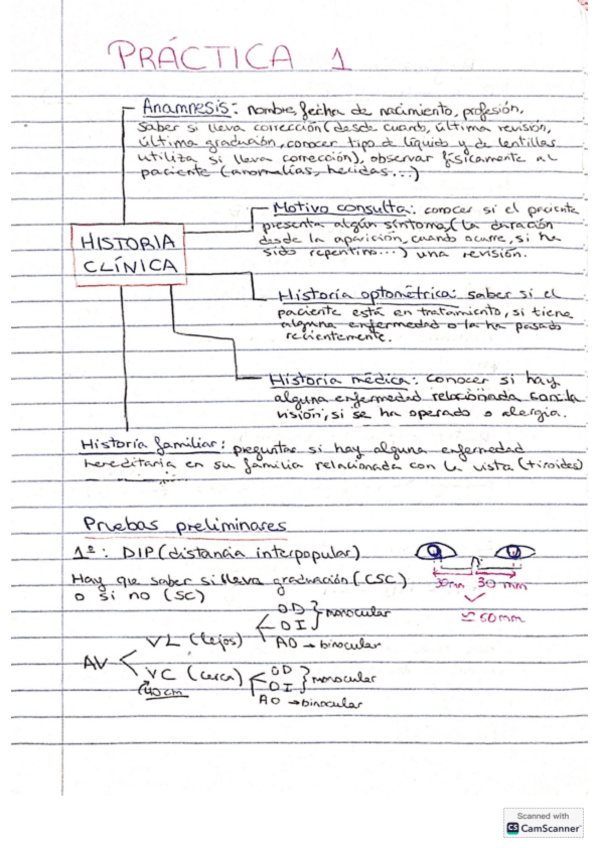 PRÁCTICA 1
Anamnesis: nombre, fecha de nacimiento, profesión,
saber si lleva corrección (desde cuando, última revisión,
última graduación, conocer tipo de líquido y de lentillas
utiliza si lleva corrección), observar físicamente al
paciente (anomalías, heridas...)
HISTORIA
CLÍNICA
Motivo consulta: conocer si el paciente
presenta algún síntoma (la duración
desde la aparición, cuando ocurre, si ha
sido repentino...) una revisión.
Historia optométrica: saber si el
paciente está en tratamiento, si tiene
alguna enfermedad o la ha pasado
recientemente.
Historia médica: conocer si hay
alguna enfermedad relacionada con la
visión, si se ha operado o alergia.
Historia familiar: preguntar si hay alguna enfermedad
hereditaria en su familia relacionada con la vista (tiroides)
Pruebas preliminares
1º: DIP (distancia interpopular)
Hay que saber si lleva graduación (CSC)
o si no (SC)
30mm 30 mm
≃ 60mm
AV
VL (lejos)
OD
OI
} monocular
AO → binocular
VC (cerca)
40cm
OD
OI
} monocular
AO → binocular
Scanned with
CS CamScanner